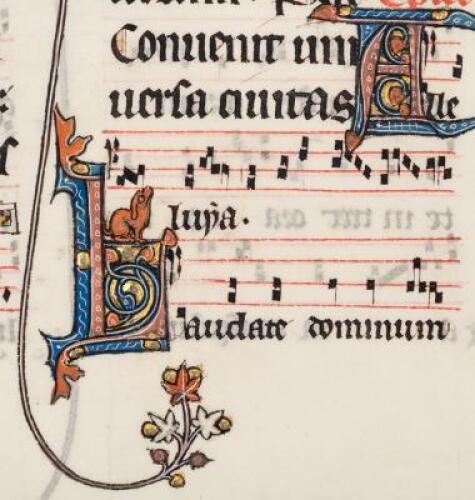 Conuenit uni
uersa ciuitas Alle
luya.
Laudate dominum